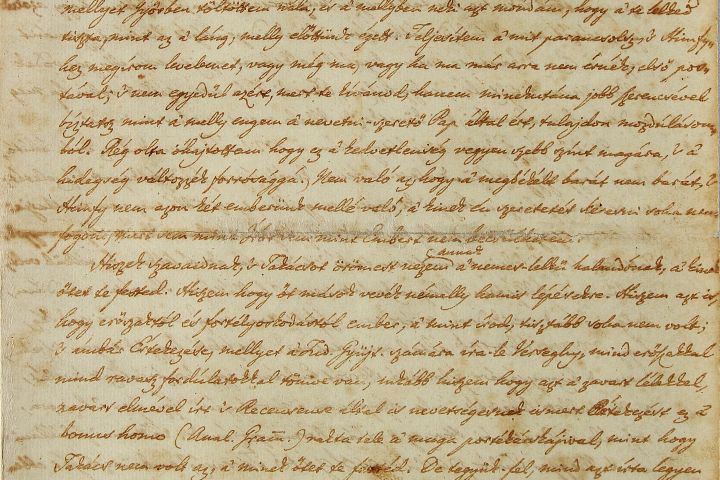 mellyet Győrben töltöttem vala, és a mellyben neki azt mondám, hogy a' te lelked
tiszta, mint az a' láng, melly előttünk égett. Teljesítem a' mit parancsolsz, 's Himfy-
hez megírom levelemet, vagy még ma, vagy ha ma már arra nem érnék, első pos-
tával; 's nem egyedül azért, mert te kivánod, hanem mindentúna jobb szerencsével
mint a' melly engem a' nevetni-szerető Pap által ért, tulajdon mozdúlásom-
ból. Rég olta óhajtottam hogy ez a' kedvetlenség vegyen szebb színt magára, 's a'
hidegség változzék forrósággá. Nem való az, hogy a' megbékélt barát nem barát, 's
Himfy nem azon két emberünk mellé való, a' kinek én szeretetét keresni soha nem
fogom, mert sem mint Írót sem mint Embert nem becsülhetem.
Hiszek szavaidnak, 's Takácsot örömest nézem annak a' nemes-lelkű halandónak, a' kinek
őtet te fested. Hiszem hogy őt mások vevék némelly hamis lépésekre. Hiszem azt is,
hogy erőszaktól és fortélyoskodástól ember, a' mint írod, tisztább soha nem volt;
's ámbár Értekezése, mellyet a' Tud. Gyűjt. számára íra le Verseghy, mind erőszakkal
mind ravasz fordúlatokkal tömve van, inkább hiszem hogy azt a' zavart lélekkel,
zavart elmével írt 's Recensense által is nevetségesnek ismert Értekezést ez a'
bonus homo (Anal. Gram.) rakta tele a' maga portékácskájival, mint hogy
Takács nem volt az, a' minek őtet te fested. De tegyük-fel, mind azt írta légyen